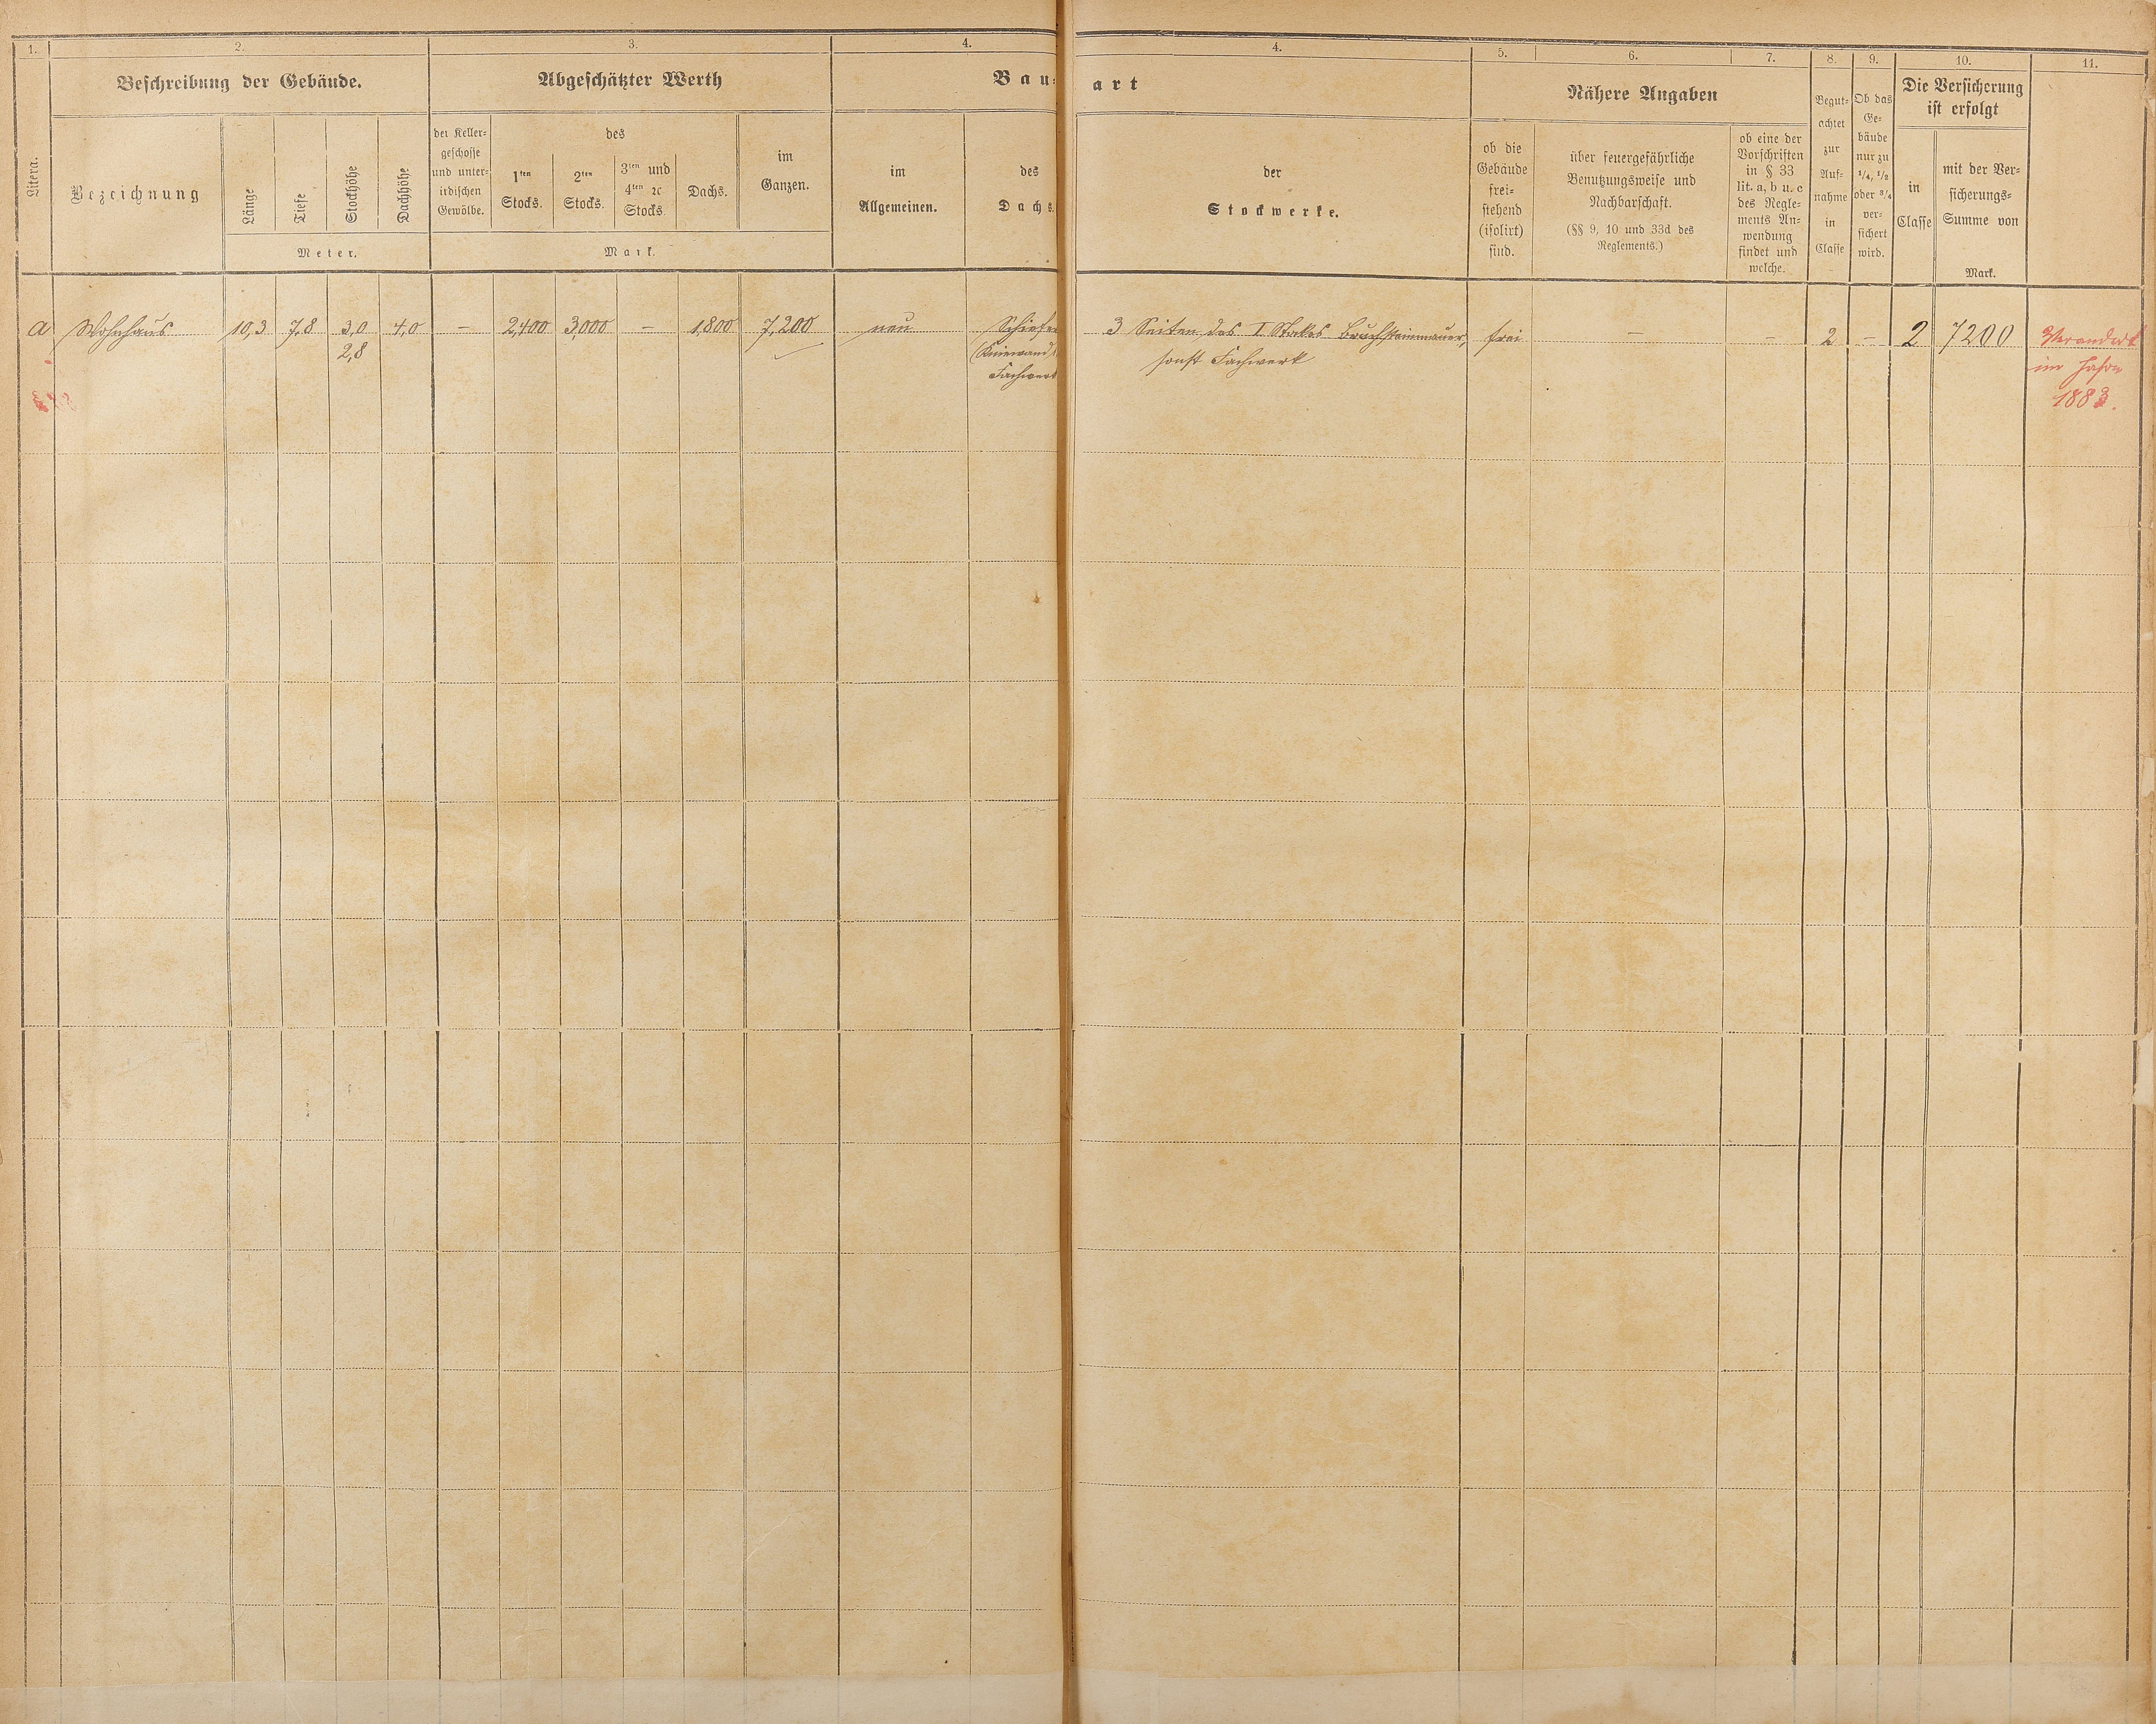 1.
2.
3.
4.
4.
5.
6.
7.
8.
9.
10.
11.
Litera.
Beschreibung der Gebäude.
Bezeichnung
Länge
Tiefe
Stockhöhe
Dachhöhe
Meter.
Abgeschätzter Werth
der Keller-
geschosse
und unter-
irdischen
Gewölbe.
des
1ten
Stocks.
2ten
Stocks.
3ten und
4ten ꝛc
Stocks
Dachs.
im
Ganzen.
Mark.
Bau-
art
im
Allgemeinen.
des
Dachs.
der
Stockwerke.
Nähere Angaben
ob die
Gebäude
frei-
stehend
(isolirt)
sind.
über feuergefährliche
Benutzungsweise und
Nachbarschaft.
(§§ 9, 10 und 33d des
Reglements.)
ob eine der
Vorschriften
in § 33
lit. a, b u. c
des Regle-
ments An-
wendung
findet und
welche.
Begut-
achtet
zur
Auf-
nahme
in
Classe
Ob das
Ge-
bäude
nur zu
1/4, 1/2
oder 3/4
ver-
sichert
wird.
Die Versicherung
ist erfolgt
in
Classe
mit der Ver-
sicherungs-
Summe von
Mark.
a Wohnhaus 10,3 7,8 3,0 4,0 — 2,400 3,000 — 1,800 7,200 neu Schiefer 3 Seiten des I Stockes Bruchsteinmauer, frei — — 2 — 2 7200 Verändert
2,8 (Kniewand sonst Fachwerk im Jahre
Fachwerk 1883.